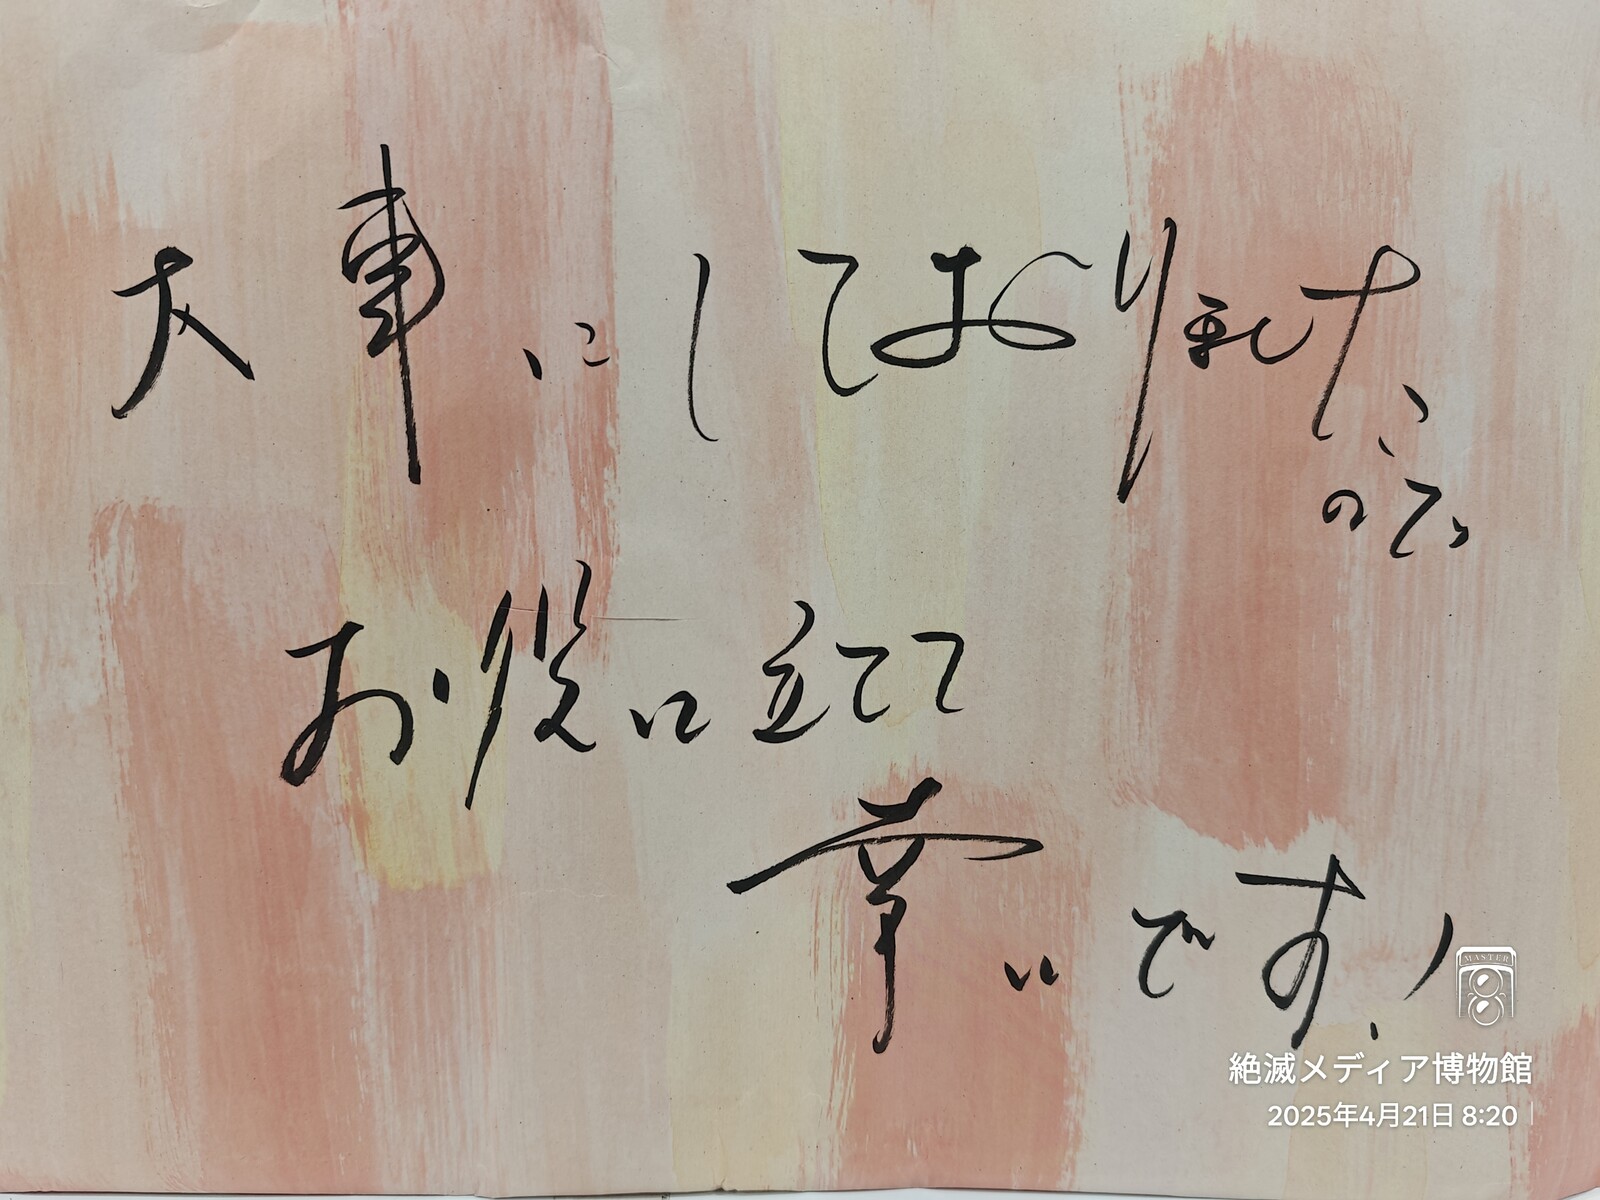 大事にしておりました
ので
お役に立てて
幸いです！
MASTER
絶滅メディア博物館
2025年4月21日 8:20